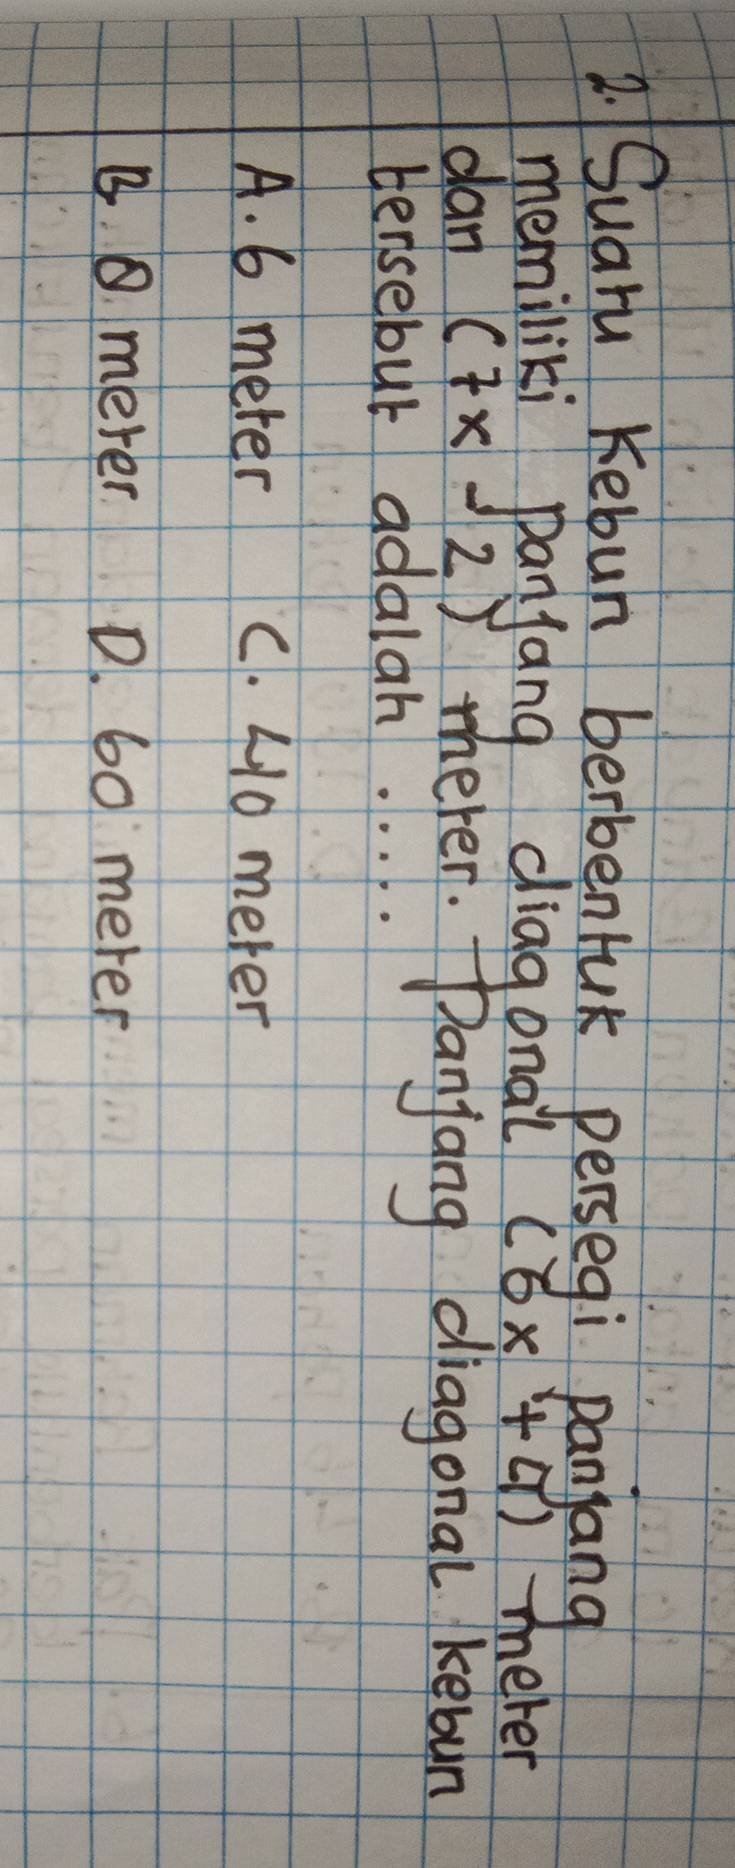 2. Suatu Kebun berbentuk persegi panjang
memiliki panjang diagonal (6x + 4) meter
dan (7x - 2) meter. Panjang diagonal kebun
tersebut adalah .....
A. 6 meter C. 40 meter
B. 8 meter D. 60 meter